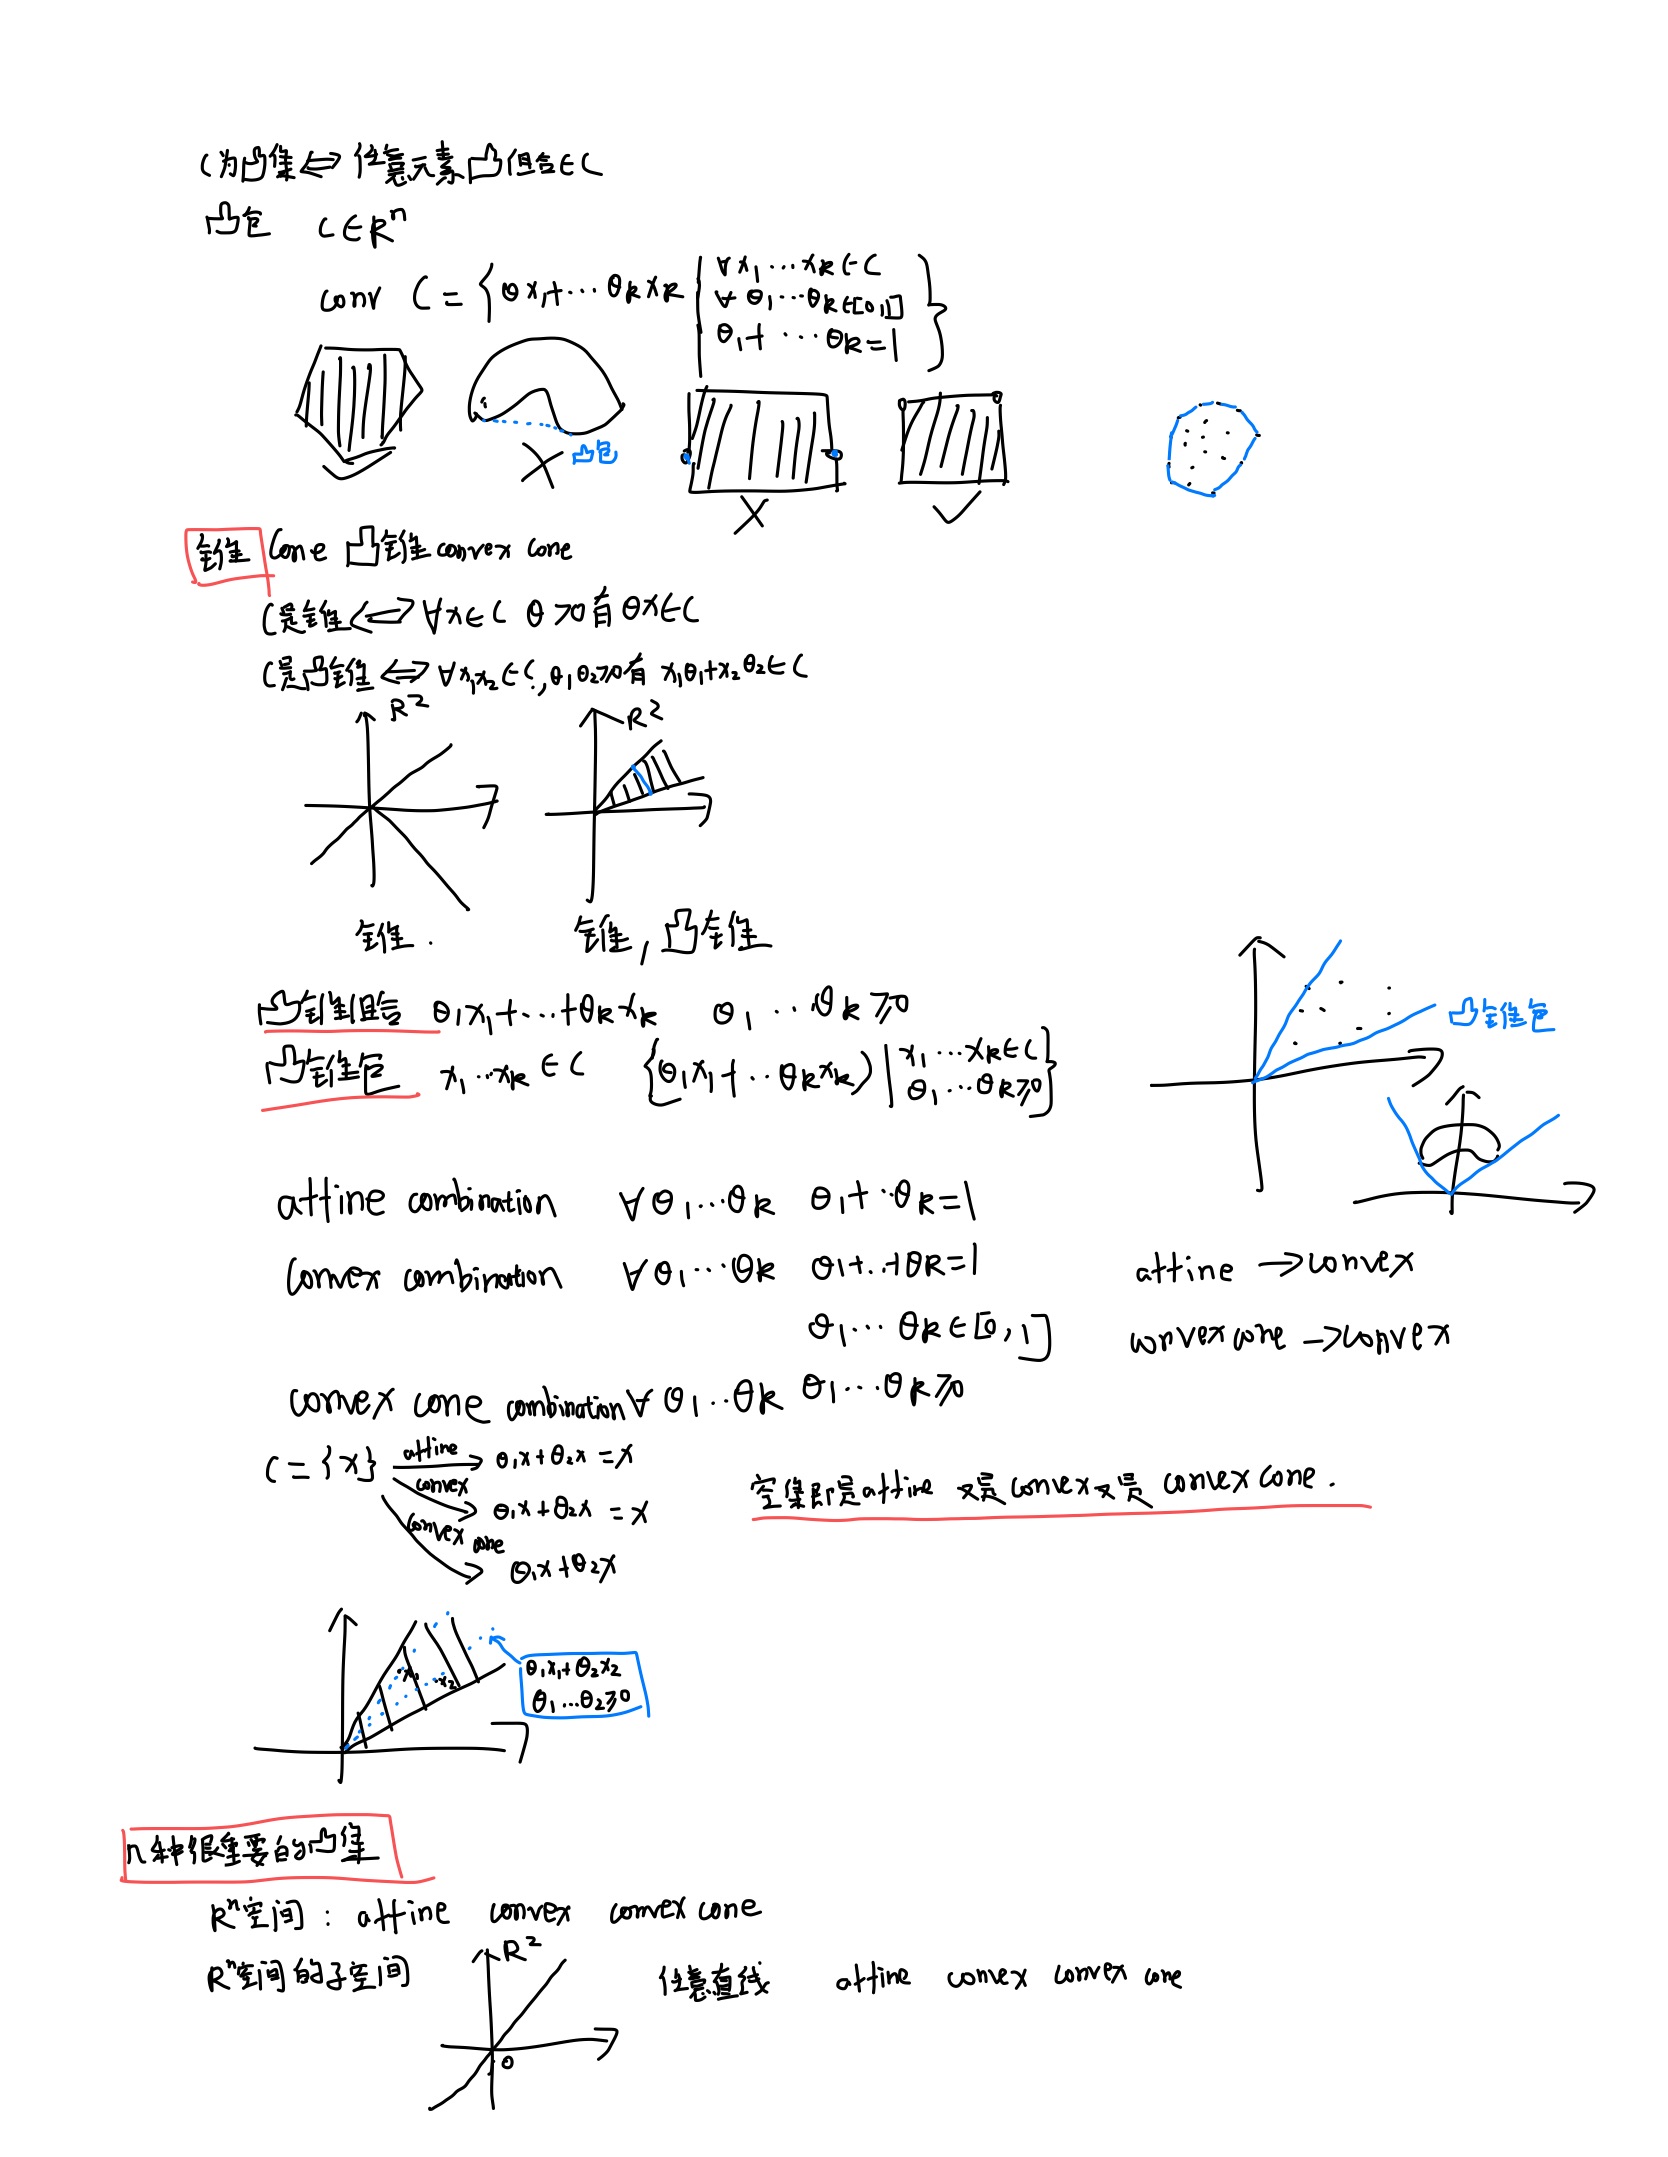 C为凸集⟺任意元素凸组合∈C
凸包 C∈Rⁿ
conv C = {θx₁+…θₖxₖ | ∀x₁…xₖ∈C
∀θ₁…θₖ∈[0,1]
θ₁+…θₖ=1}
凸包
锥 Cone 凸锥 convex cone
C是锥⟺∀x∈C θ≥0有θx∈C
C是凸锥⟺∀x₁x₂∈C,θ₁θ₂≥0有 x₁θ₁+x₂θ₂∈C
R² R²
锥. 锥,凸锥
凸锥组合 θ₁x₁+…+θₖxₖ θ₁…θₖ≥0
凸锥包
凸锥包 x₁…xₖ∈C {(θ₁x₁+…θₖxₖ) | x₁…xₖ∈C
θ₁…θₖ≥0}
affine combination ∀θ₁…θₖ θ₁+…θₖ=1
Convex combination ∀θ₁…θₖ θ₁+…+θₖ=1
θ₁…θₖ∈[0,1]
affine →convex
convex cone →convex
convex cone combination ∀θ₁…θₖ θ₁…θₖ≥0
C={x} affine θ₁x+θ₂x=x
convex θ₁x+θ₂x=x
Convex cone θ₁x+θ₂x
空集即是affine 又是convex又是 convex cone.
x₁ x₂
θ₁x₁+θ₂x₂
θ₁…θ₂≥0
n种很重要的凸集
Rⁿ空间: affine convex convex cone
Rⁿ空间的子空间 R² 任意直线 affine convex convex cone
0